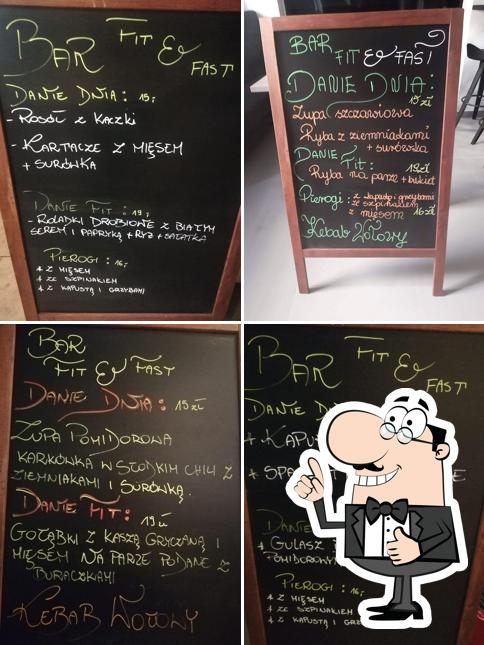 BAR FIT & FAST
DANIE DNIA: 15,-
- ROSÓŁ Z KACZKI
- KARTACZE Z MIĘSEM
+ SURÓWKA
DANIE FIT: 19,-
- ROLADKI DROBIOWE Z BIAŁYM
SEREM I PAPRYKĄ + RYŻ + SAŁATKA
PIEROGI: 16,-
* Z MIĘSEM
* ZE SZPINAKIEM
* Z KAPUSTĄ I GRZYBAMI
BAR
FIT & FAST
DANIE DNIA:
15 zł
Zupa szczawiowa
Ryba z ziemniakami
+ surówka
DANIE FIT: 19zł
Ryba na parze + bukiet
Pierogi: z kapustą i grzybami
z szpinakiem
z mięsem 16 zł
Kebab Wołowy
BAR
FIT & FAST
DANIE DNIA: 15 zł
ZUPA POMIDOROWA
KARKÓWKA W SŁODKIM CHILI Z
ZIEMNIAKAMI I SURÓWKĄ.
DANIE FIT:
19 zł
GOŁĄBKI Z KASZĄ GRYCZANĄ I
MIĘSEM NA PARZE PODANE Z
BURACZKAMI
KEBAB WOŁOWY
BAR FIT &
FAST
DANIE
+ KAPU
+ SPA
DANIE
* GULASZ
POMIDOROWY
PIEROGI: 16,-
* Z MIĘSEM
* ZE SZPINAKIEM
* Z KAPUSTĄ I GRZ